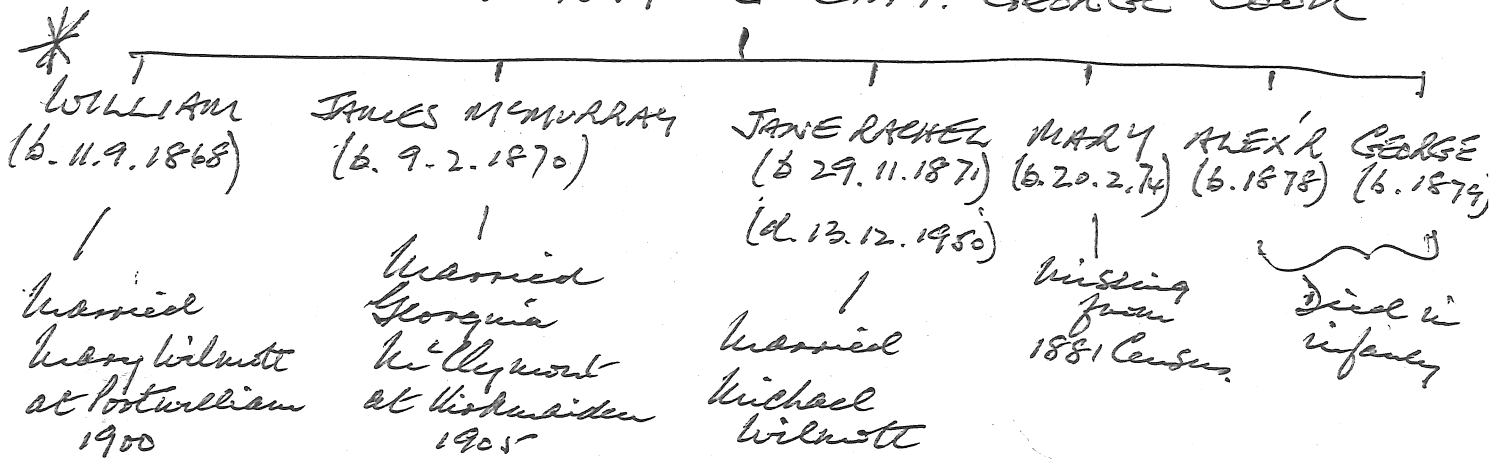 CAPT. GEORGE COOK
WILLIAM
(b. 11.9.1868)
Married
Mary Wilmott
at Portwilliam
1900
JAMES McMURRAY
(b. 9-2-1870)
Married
Georgina
McClymont
at Kirkmaiden
1905
JANE RACHEL
(b 29.11.1871)
(d. 13.12.1950)
Married
Michael
Wilmott
MARY
(b. 20.2.74)
Missing
from
1881 Census.
ALEX'R
(b. 1878)
GEORGE
(b. 1879)
Died in
infancy